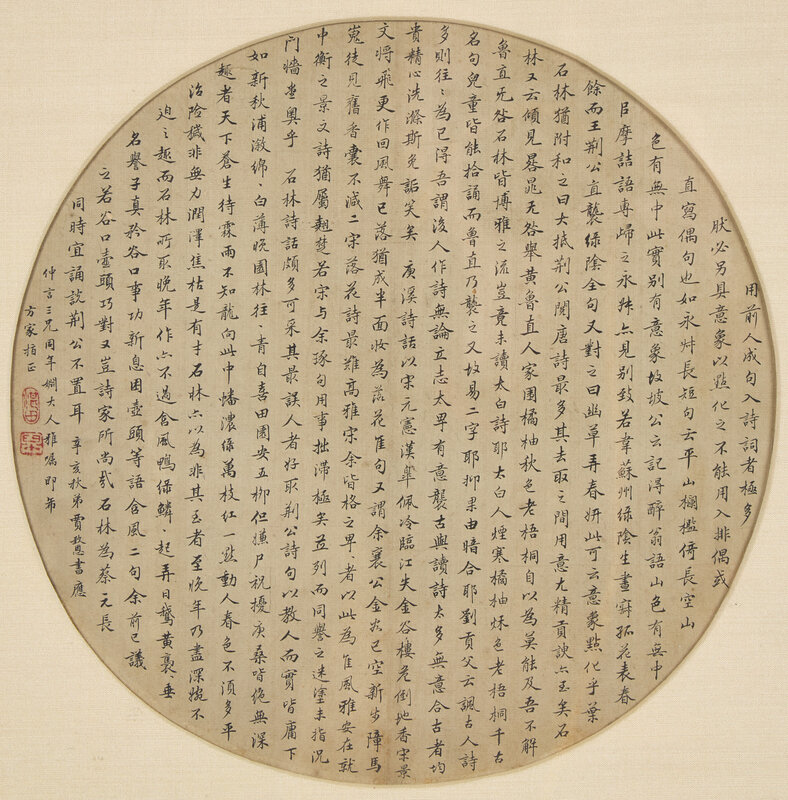 用前人成句入詩詞者極多
肰必另具意象以點化之不能用入排偶或
直寫偶句也如永叔長短句云平山欄檻倚長空山
色有無中此實別有意象故坡公云記得醉翁語山色有無中
㠯摩詰語專歸之永叔亦見別致若韋蘇州綠陰生晝寂孤花表春
餘而王荊公直襲綠陰全句又對之曰幽草弄春妍此可云意象點化乎葉
石林猶附和之曰大抵荊公閱唐詩最多其去取之間用意尤精貢諛亦至矣石
林又云傾見晁无咎舉黃魯直人家圍橘柚秋色老梧桐自以為莫能及吾不解
魯直无咎石林皆博雅之流豈竟未讀太白詩耶太白人煙寒橘柚秌色老梧桐千古
名句兒童皆能拾誦而魯直乃襲之又故易二字耶抑果由暗合耶劉貢父云諷古人詩
多則往〻為已得吾謂後人作詩無論立志太卑有意襲古與讀詩太多無意合古者均
貴精心洗滌斯免詬笑矣 庚溪詩話以宋元憲漢皋佩冷臨江失金谷樓危倒地香宋景
文將飛更作回風舞已落猶成半面妝為落花隹句又謂余襄公金谷已空新步障馬
嵬徒見舊香囊不減二宋落花詩最難高雅宋余皆格之卑〻者以此為隹風雅安在就
中衡之景文詩猶屬翹楚若宋与余琢句用事拙滯極矣竝列而同譽之迷塗未指況
門牆堂奧乎 石林詩話頗多可采其最誤人者好取荊公詩句以教人而實皆庸下
如新秋浦漵綿〻白薄晚園林往〻青自喜田園安五柳但嫌尸祝擾庚桑皆絕無深
趣者天下蒼生待霖雨不知龍向此中蟠濃綠萬枝紅一點動人春色不須多平
治險穢非無力潤澤焦枯是有才石林亦以為非其至者至晚年乃盡深婉不
迫之趣而石林所取晚年作亦不過含風鴨綠鱗〻起弄日鵞黃裊〻垂
名譽子真矜谷口事功新息困壺頭等語含風二句余前已議
之若谷口壺頭巧對又豈詩家所尚哉石林為蔡元長
同時宜誦說荊公不置耳 辛亥秋弟賈㻛書應
仲言三兄同年姻大人雅囑即希
方家指正